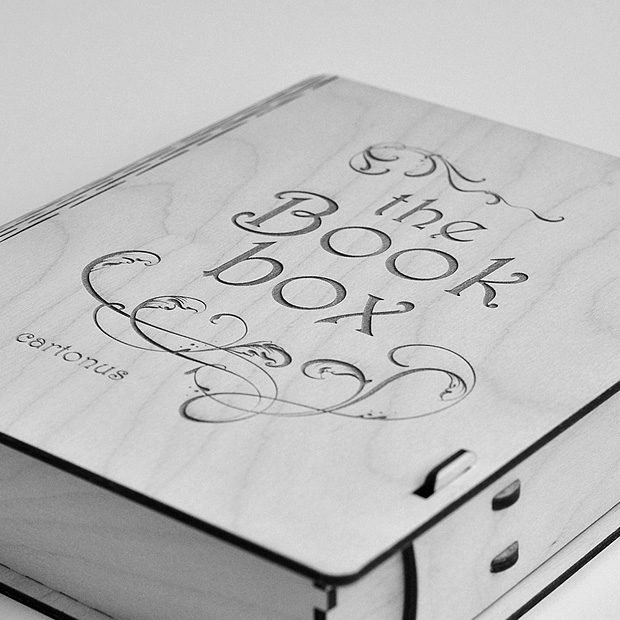 the
Book
box
cartonus